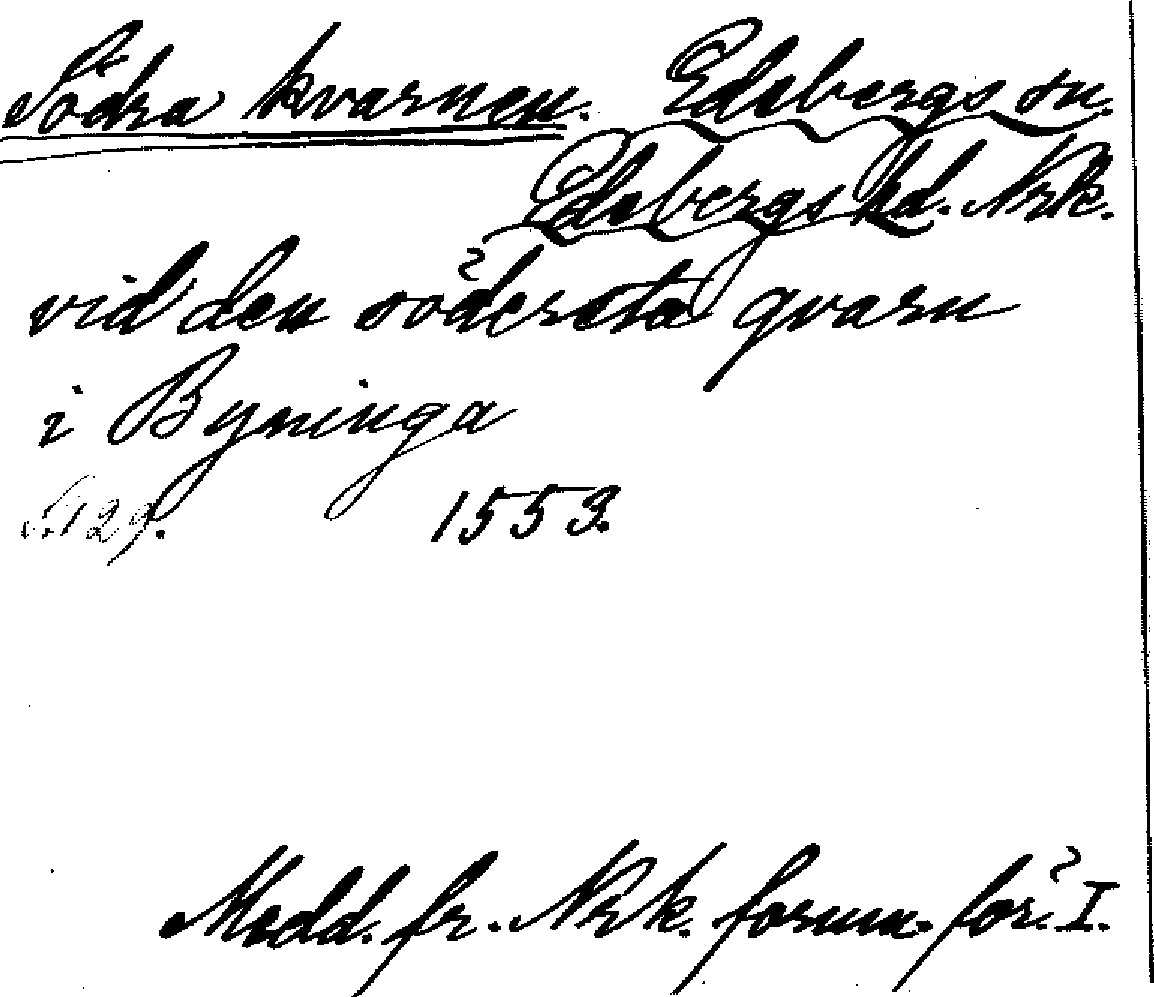 Södra kvarnen. Edsbergs sn.
Edsbergs hd. Nrk.
vid den södersta qvarn
i Byninga
S. 129. 1553.
Medd. fr. Nrk. fornm. för. I.